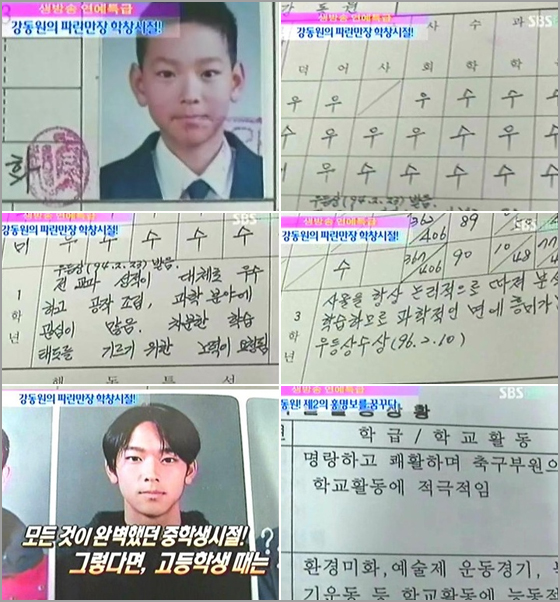 생방송 연예특급
강동원의 파린만장 학창시절!
화
생방송 연예특급
SBS
강동원의 파린만장 학창시절!
강 동 원
사 수 과
덕 어 사 회 학 학
우 우 우 수 수
수 우 우 수 수 수
우 수 수 수 수
우등상(94.2.23) 받음.
생방송 연예특급
SBS
강동원의 파린만장 학창시절!
수 수 수 수
우등상(94.2.23) 받음.
1
학
년
전 교과 성적이 대체로 우수
하고 공작 조립, 과학 분야에
관심이 많음. 차분한 학습
태도를 기르기 위한 노력이 요청됨
행 동 특 성
생방송 연예특급
SBS
강동원의 파린만장 학창시절!
수
406 89
367
406 90
10
48
3
학
년
사물을 항상 논리적으로 따져 분석
학습하므로 과학적인 면에 흥미가
우등상수상(96.2.10)
강동원의 파린만장 학창시절!
모든 것이 완벽했던 중학생시절!
그렇다면, 고등학생 때는
?
생방송 연예특급
SBS
동원! 제2의 홍명보를 꿈꾸다.
상 황
학 급 / 학 교 활 동
명랑하고 쾌활하며 축구부원으
학교활동에 적극적임
환경미화, 예술제 운동경기,
기운동 등 학교활동에 능동적